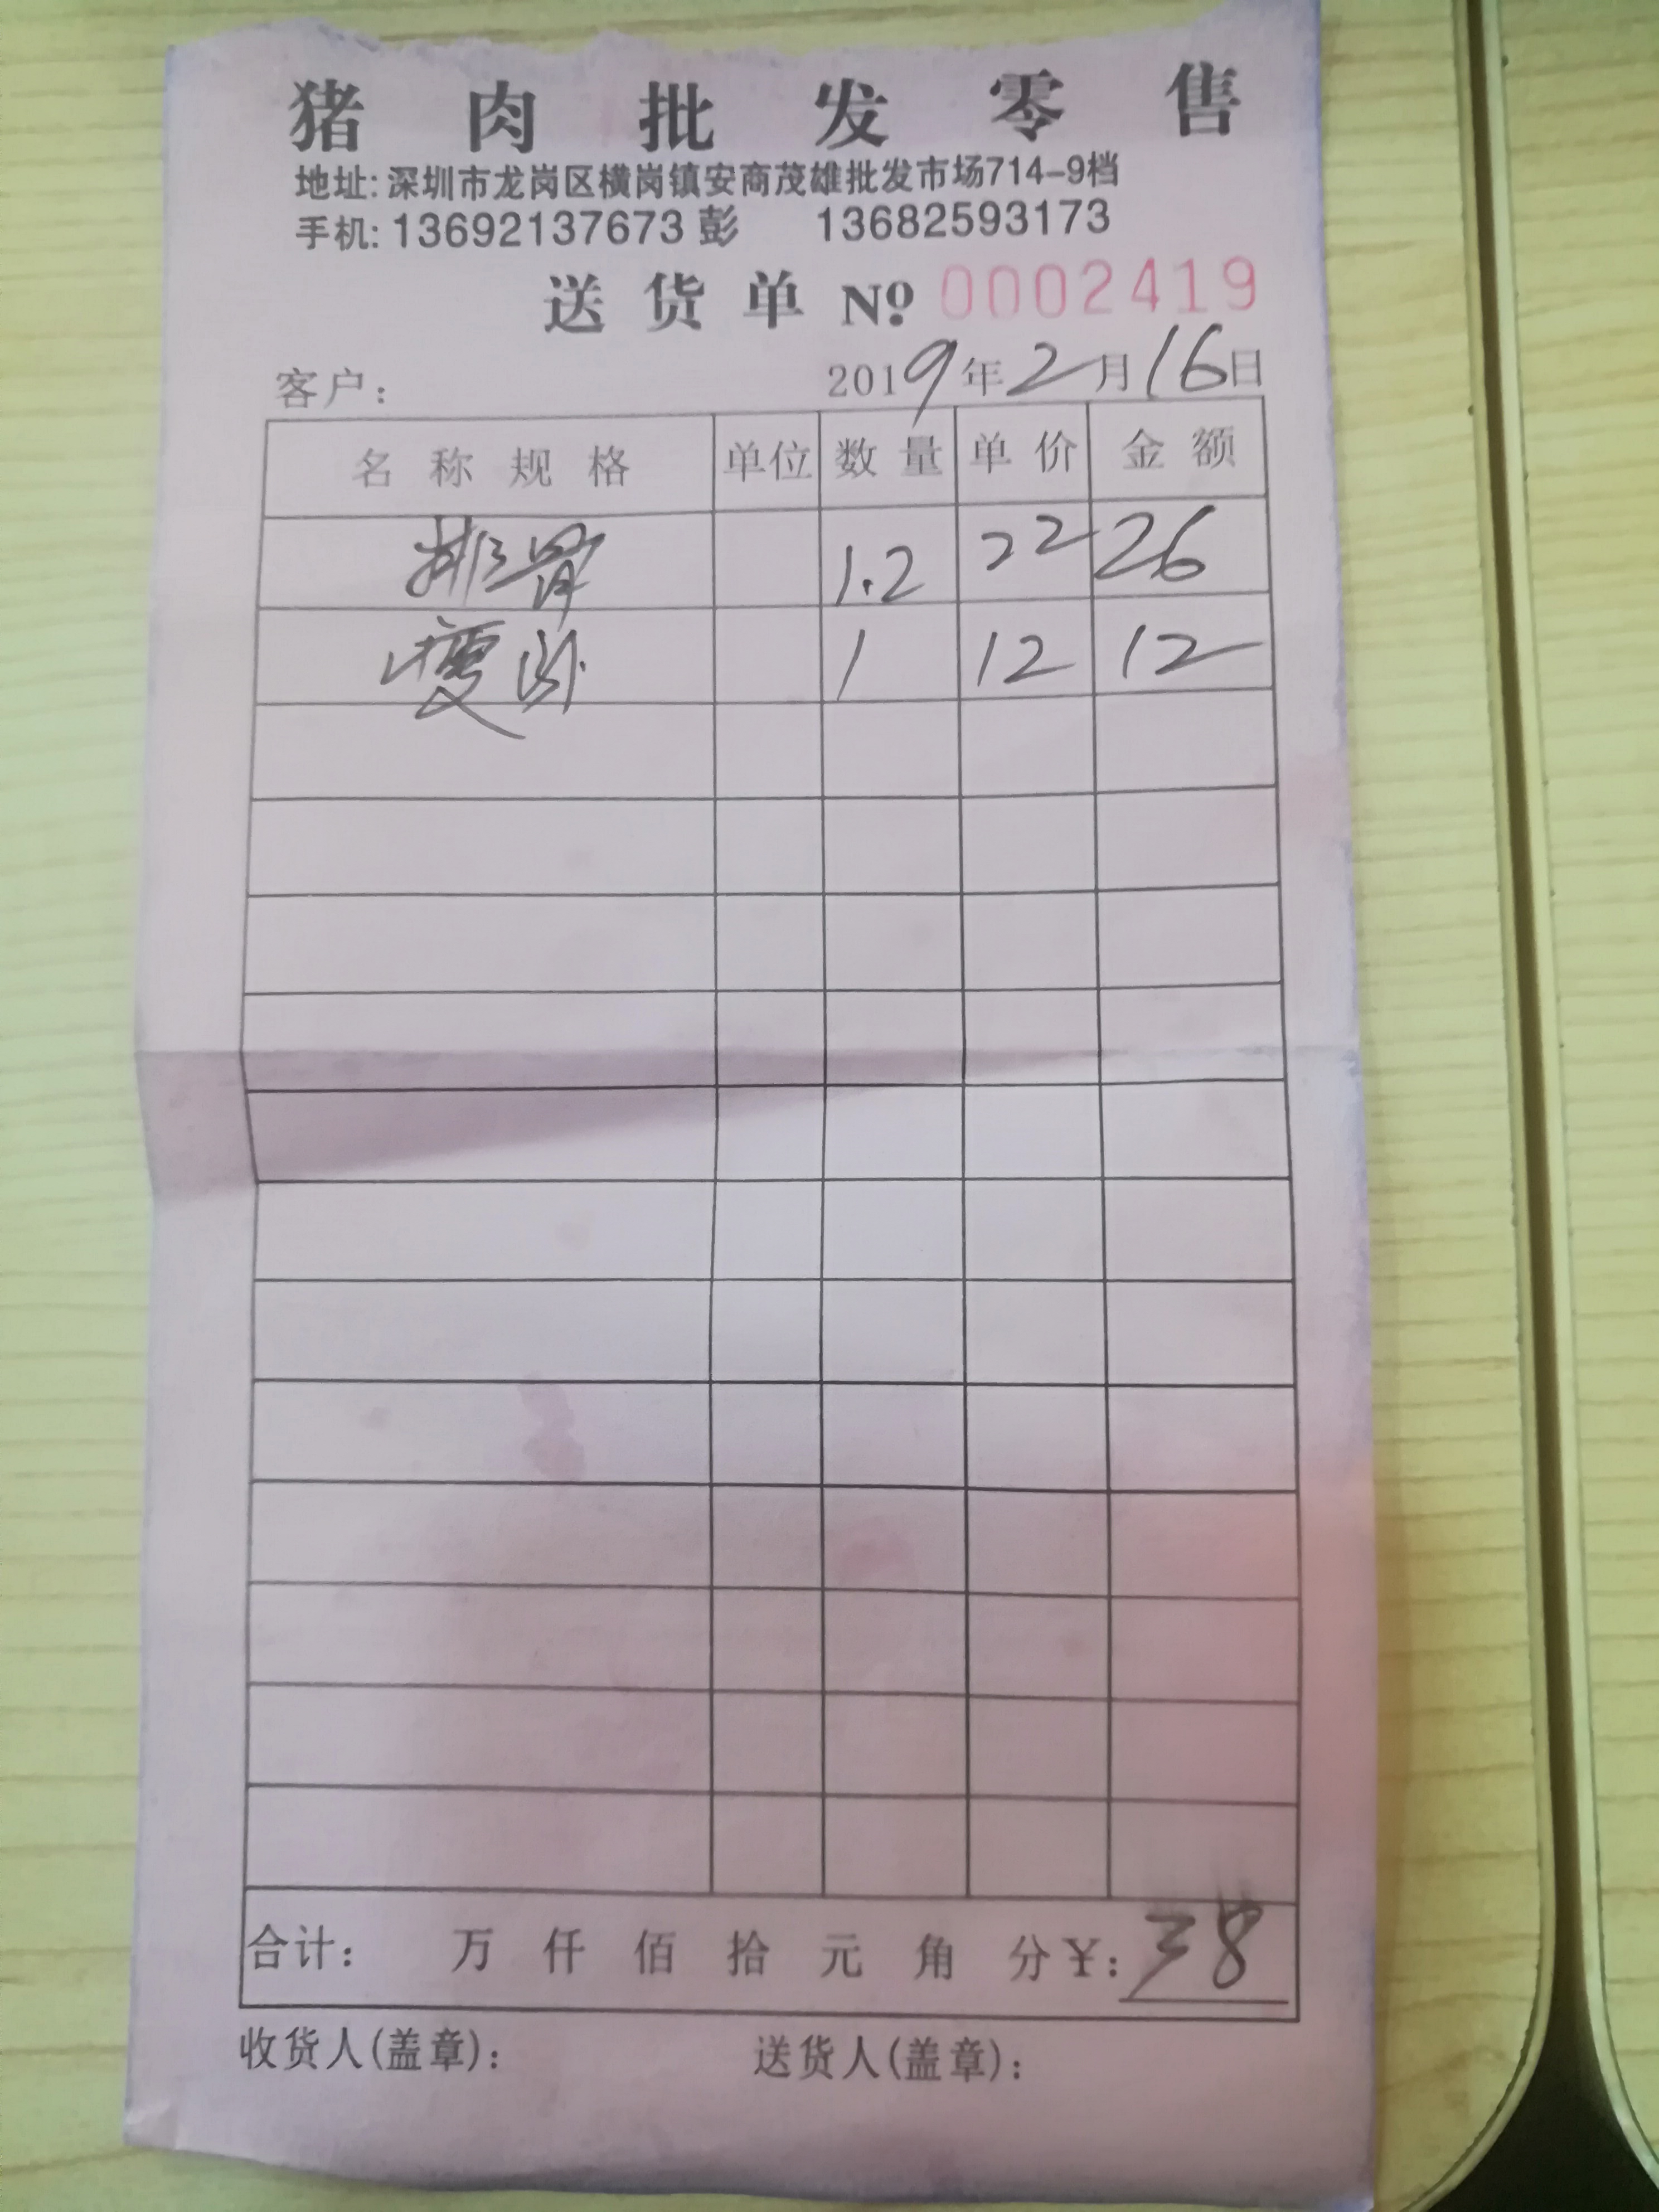 猪肉批发零售
地址:深圳市龙岗区横岗镇安商茂雄批发市场714-9档
手机:13692137673彭 13682593173
送货单 Nº 0002419
客户: 2019年2月16日
名称规格 单位 数量 单价 金额
排骨 1.2 22 26
瘦肉 1 12 12
合计: 万 仟 佰 拾 元 角 分¥:38
收货人(盖章): 送货人(盖章):